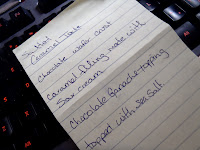 Salted
Caramel Tarte
Chocolate wafer crust
Caramel filling made with
Sour cream
Chocolate Ganache topping
topped with sea salt